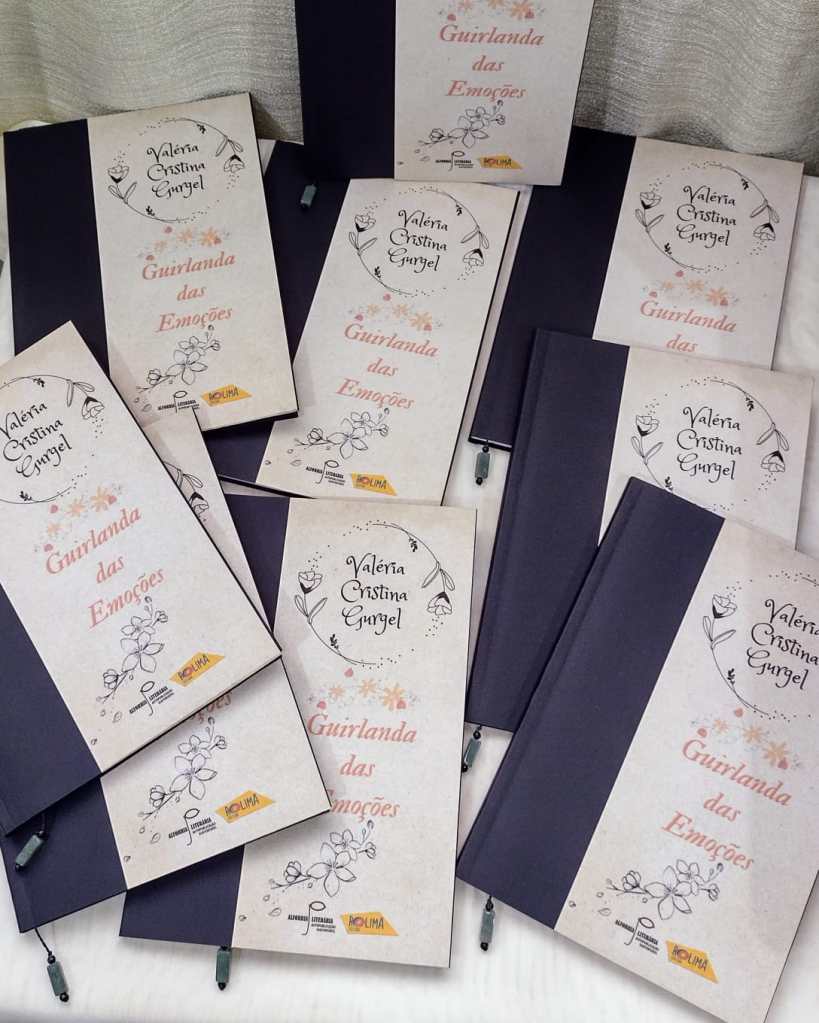 Guirlanda
das
Emoções
ALFORRIA LITERÁRIA
ROLIMÃ
Valéria
Cristina
Gurgel
Guirlanda
das
Emoções
ALFORRIA LITERÁRIA
ROLIMÃ
Valéria
Cristina
Gurgel
Guirlanda
das
Emoções
ALFORRIA LITERÁRIA
ROLIMÃ
Valéria
Cristina
Gurgel
Guirlanda
das
Valéria
Cristina
Gurgel
Valéria
Cristina
Gurgel
Guirlanda
das
Emoções
ALFORRIA LITERÁRIA
ROLIMÃ
ALFORRIA LITERÁRIA
ROLIMÃ
Valéria
Cristina
Gurgel
Guirlanda
das
Emoções
ALFORRIA LITERÁRIA
ROLIMÃ
Valéria
Cristina
Gurgel
Guirlanda
das
Emoções
ALFORRIA LITERÁRIA
ROLIMÃ